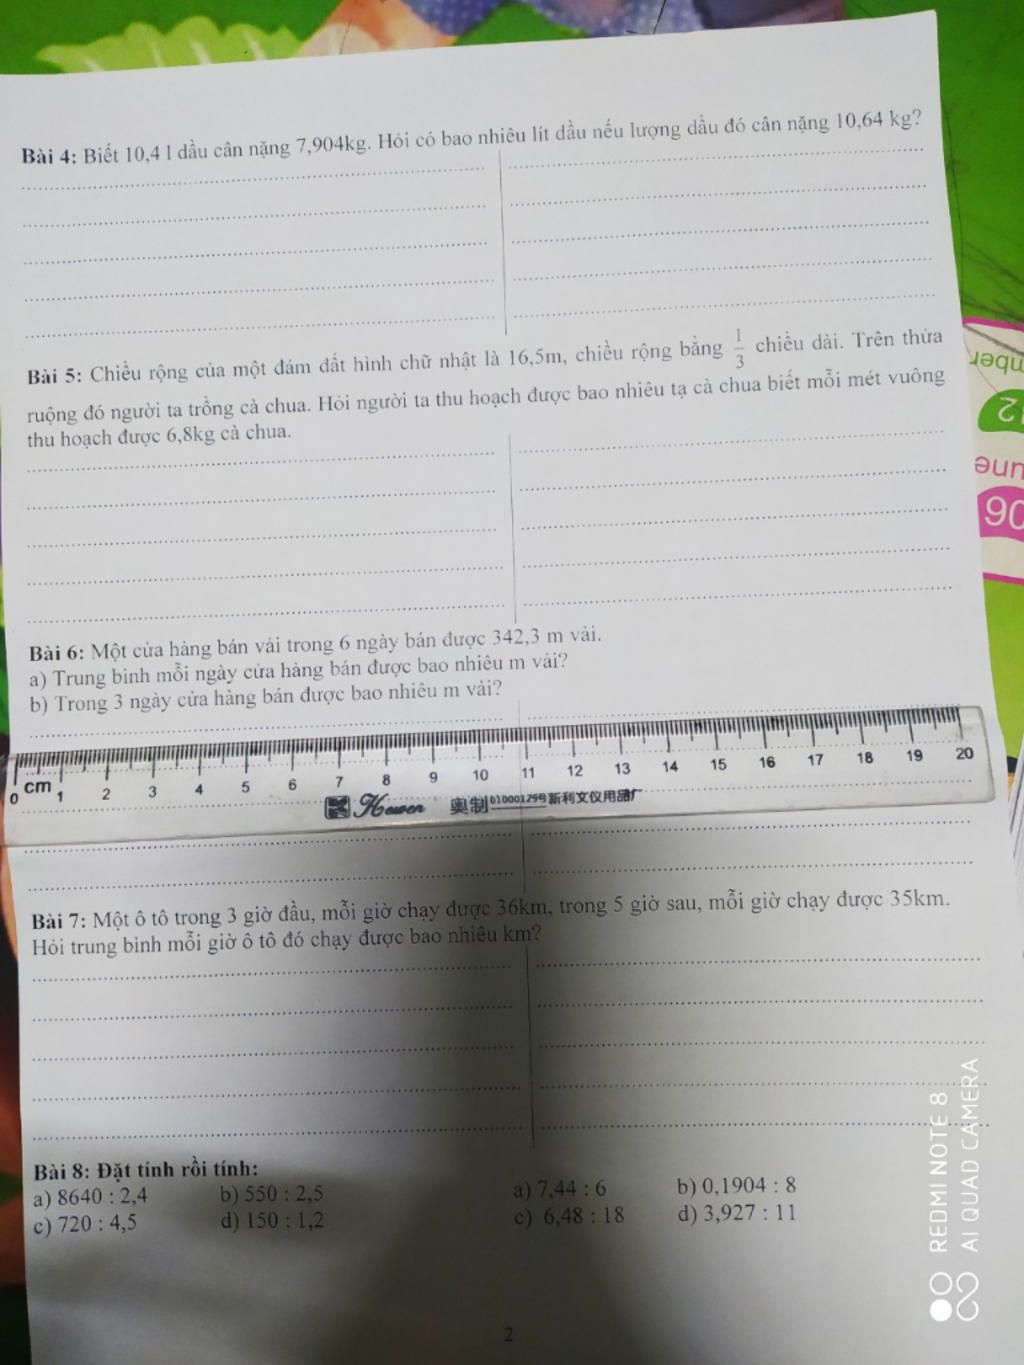 Bài 4: Biết 10,4 l dầu cân nặng 7,904kg. Hỏi có bao nhiêu lít dầu nếu lượng dầu đó cân nặng 10,64 kg?
Bài 5: Chiều rộng của một đám đất hình chữ nhật là 16,5m, chiều rộng bằng 1/3 chiều dài. Trên thửa
ruộng đó người ta trồng cà chua. Hỏi người ta thu hoạch được bao nhiêu tạ cà chua biết mỗi mét vuông
thu hoạch được 6,8kg cà chua.
Bài 6: Một cửa hàng bán vải trong 6 ngày bán được 342,3 m vải.
a) Trung bình mỗi ngày cửa hàng bán được bao nhiêu m vải?
b) Trong 3 ngày cửa hàng bán được bao nhiêu m vải?
0 cm 1 2 3 4 5 6 7 8 9 10 11 12 13 14 15 16 17 18 19 20
奥制 01000129号 新利文仪用品厂
Bài 7: Một ô tô trong 3 giờ đầu, mỗi giờ chạy được 36km, trong 5 giờ sau, mỗi giờ chạy được 35km.
Hỏi trung bình mỗi giờ ô tô đó chạy được bao nhiêu km?
Bài 8: Đặt tính rồi tính:
a) 8640 : 2,4 b) 550 : 2,5 a) 7,44 : 6 b) 0,1904 : 8
c) 720 : 4,5 d) 150 : 1,2 c) 6,48 : 18 d) 3,927 : 11
2
REDMI NOTE 8
AI QUAD CAMERA